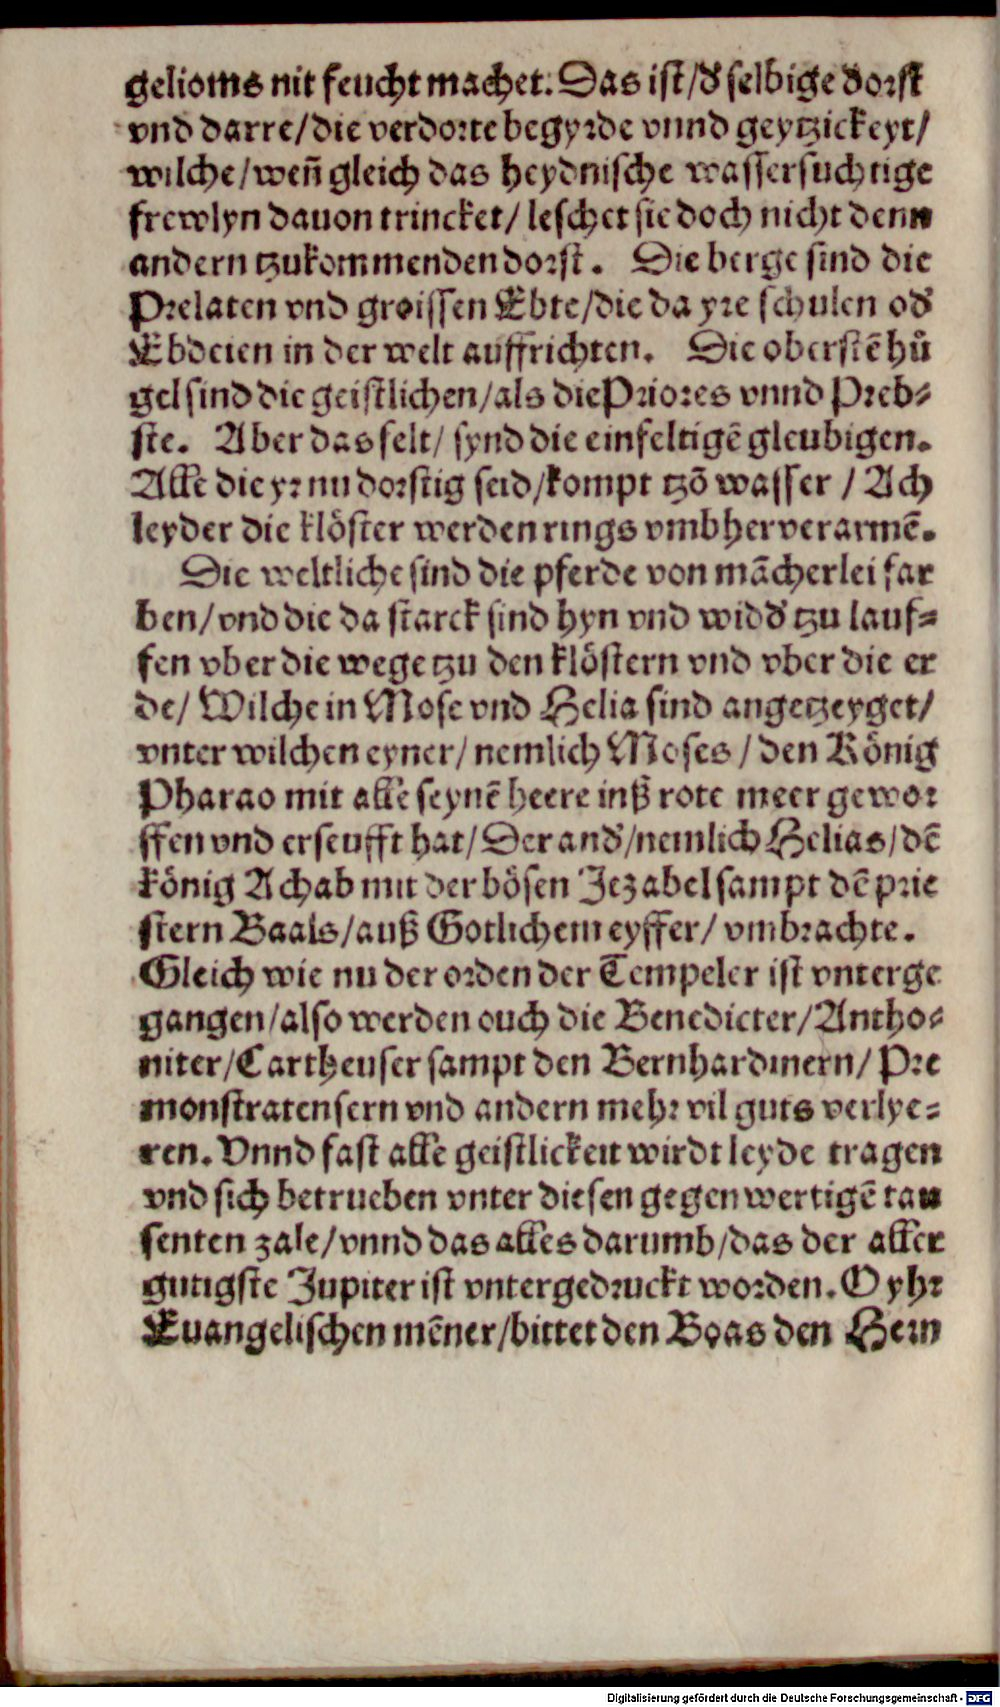 gelioms nit feucht machet. Das ist/d' selbige dorst
vnd darre/die verdorte begyrde vnnd geytzickeyt/
wilche/weñ gleich das heydnische wassersuchtige
frewlyn dauon trincket/ leschet sie doch nicht denn
andern tzukommenden dorst. Die berge sind die
Prelaten vnd groissen Ebte/die da yre schulen od'
Ebdeien in der welt auffrichten. Die oberstē hů
gel sind die geistlichen/als die Priores vnnd Preb-
ste. Aber das felt/ synd die einfeltigē gleubigen.
Alle die yr nu dorstig seid/kompt tzō wasser / Ach
leyder die klöster werden rings vmbher verarmē.
Die weltliche sind die pferde von mācherlei far
ben/vnd die da starck sind hyn vnd widd' tzu lauf-
fen vber die wege tzu den klöstern vnd vber die er
de/ Wilche in Mose vnd Helia sind angetzeyget/
vnter wilchen eyner/ nemlich Moses / den König
Pharao mit alle seynē heere inß rote meer gewor
ffen vnd erseufft hat/ Der and'/nemlich Helias/dē
könig Achab mit der bösen Jezabel sampt dē prie
stern Baals/auß Gotlichem eyffer/ vmbrachte.
Gleich wie nu der orden der Tempeler ist vnterge
gangen/also werden ouch die Benedicter/Antho-
niter/Cartheuser sampt den Bernhardinern/ Pre
monstratensern vnd andern mehr vil guts verlye-
ren. Vnnd fast alle geistlickeit wirdt leyde tragen
vnd sich betrueben vnter diesen gegenwertigē tau
senten zale/vnnd das alles darumb/das der aller
gutigste Jupiter ist vntergedruckt worden. O yhr
Euangelischen mēner/bittet den Boas den Hern
Digitalisierung gefördert durch die Deutsche Forschungsgemeinschaft - DFG